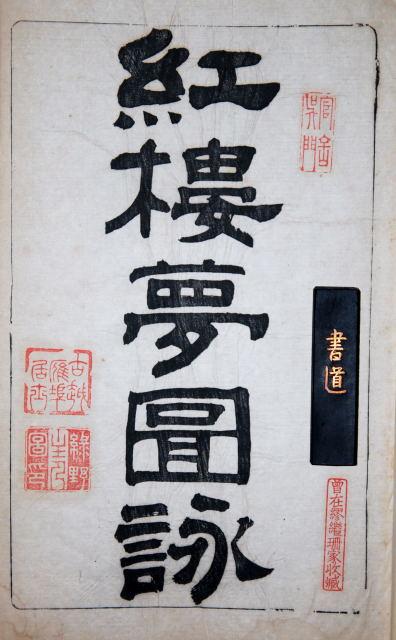 紅樓夢圖詠
書道
曾在繆繼珊家收藏